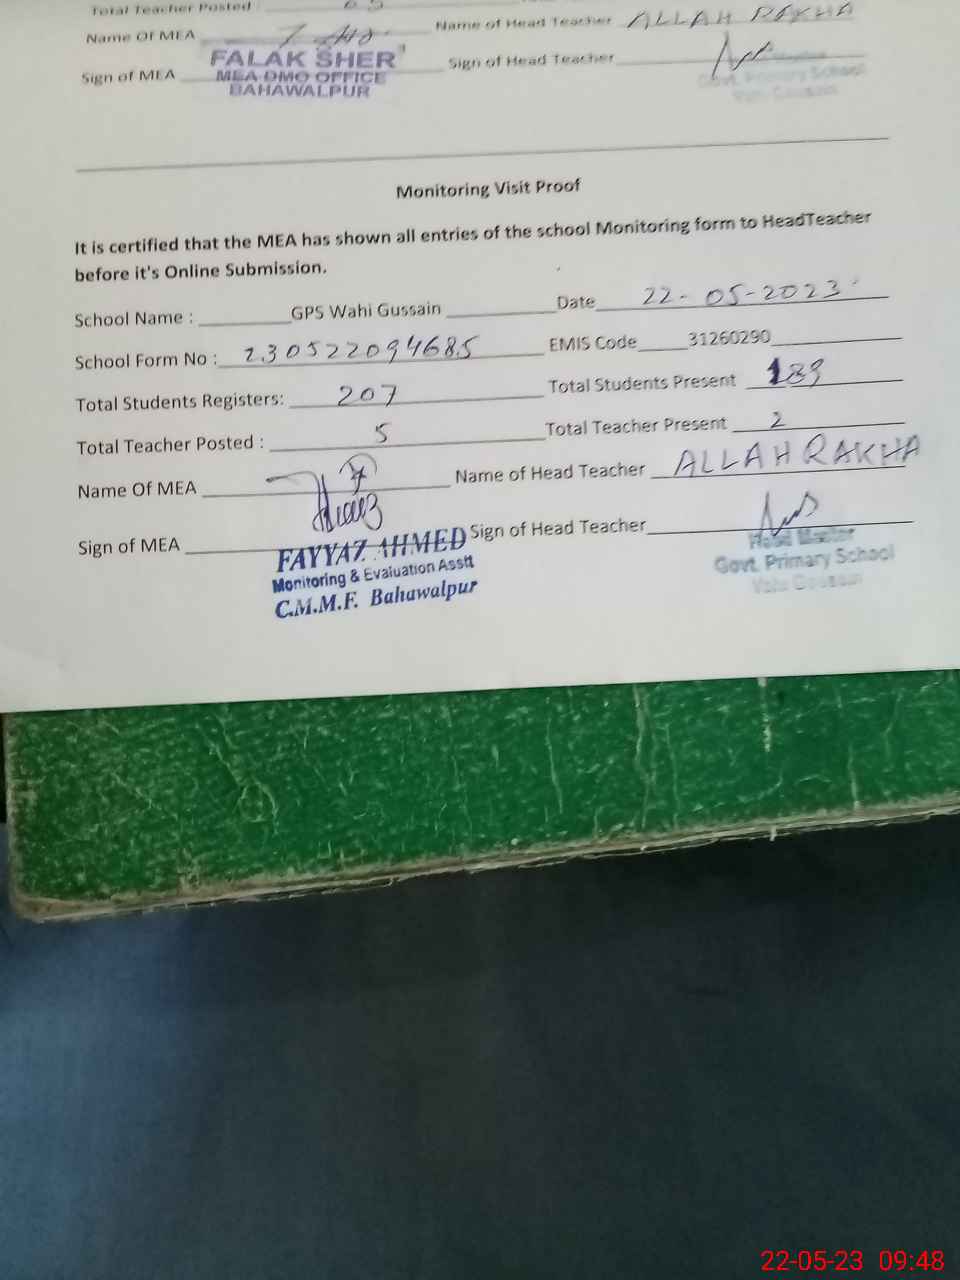 Total Teacher Posted :
Name Of MEA Name of Head Teacher ALLAH RAKHA
Sign of MEA Sign of Head Teacher
FALAK SHER
MEA DMO OFFICE
BAHAWALPUR
Govt. Primary School
Monitoring Visit Proof
It is certified that the MEA has shown all entries of the school Monitoring form to HeadTeacher
before it's Online Submission.
School Name : GPS Wahi Gussain Date 22-05-2023
School Form No : 230522094685 EMIS Code 31260290
Total Students Registers: 207 Total Students Present 189
Total Teacher Posted : 5 Total Teacher Present 2
Name Of MEA Name of Head Teacher ALLAH RAKHA
Sign of MEA Sign of Head Teacher
FAYYAZ AHMED
Monitoring & Evaluation Asstt
C.M.M.F. Bahawalpur
Head Master
Govt. Primary School
22-05-23 09:48